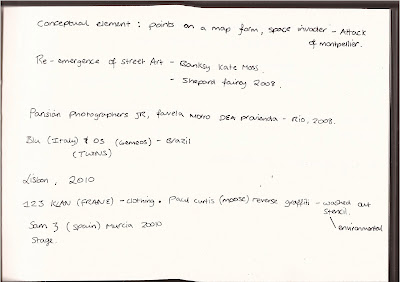 Conceptual element : points on a map form, space invader - Attack
of montpellier.
Re-emergence of street Art - Banksy Kate Moss.
- Shepard fairey 2008.
Parisian photographers JR, favela Morro DEA providencia - Rio, 2008.
Blu (Italy) & OS (Gemeos) - Brazil
(TWINS)
Lisbon, 2010
123 KLAN (FRANE) - clothing. Paul Curtis (moose) reverse graffiti - washed out
stencil.
environmental
Sam 3 (Spain) Murcia 2010
Stage.